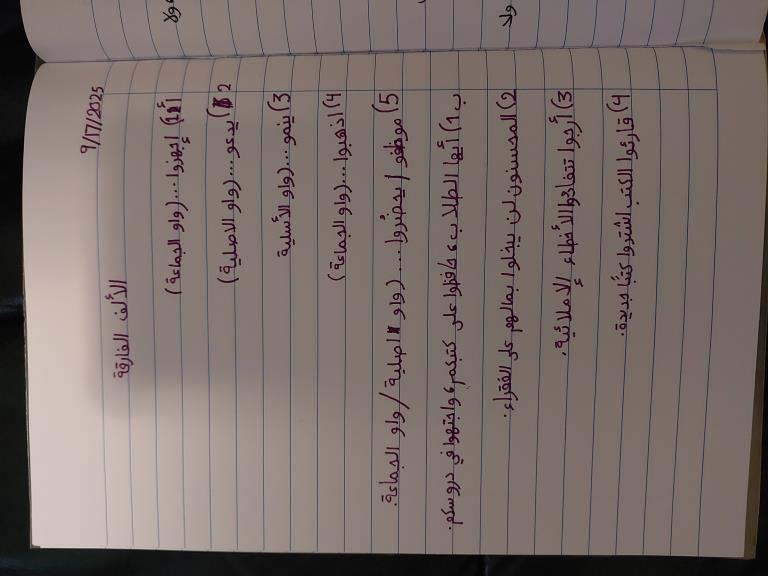 9/17/2025
الألف الفارقة
أ) 1) إجهزوا... (واو الجماعة)
2) يدعو... (واو الاصلية)
3) ينمو... (واو الأسلية
4) اذهبوا... (واو الجماعة)
5) موظفو / يحضُروا... (واو اصلية / واو الجماعة.
ب 1) أيُّها الطلاب، حافظوا على كتبكم، واجتهوا في دروسكم.
2) المحسنون لن يبخلوا بمالهم على الفقراء.
3) أرجوا تتفادوا الأخطاء الاملائية.
4) قارئوا الكتب اشتروا كتبًا جديدة.